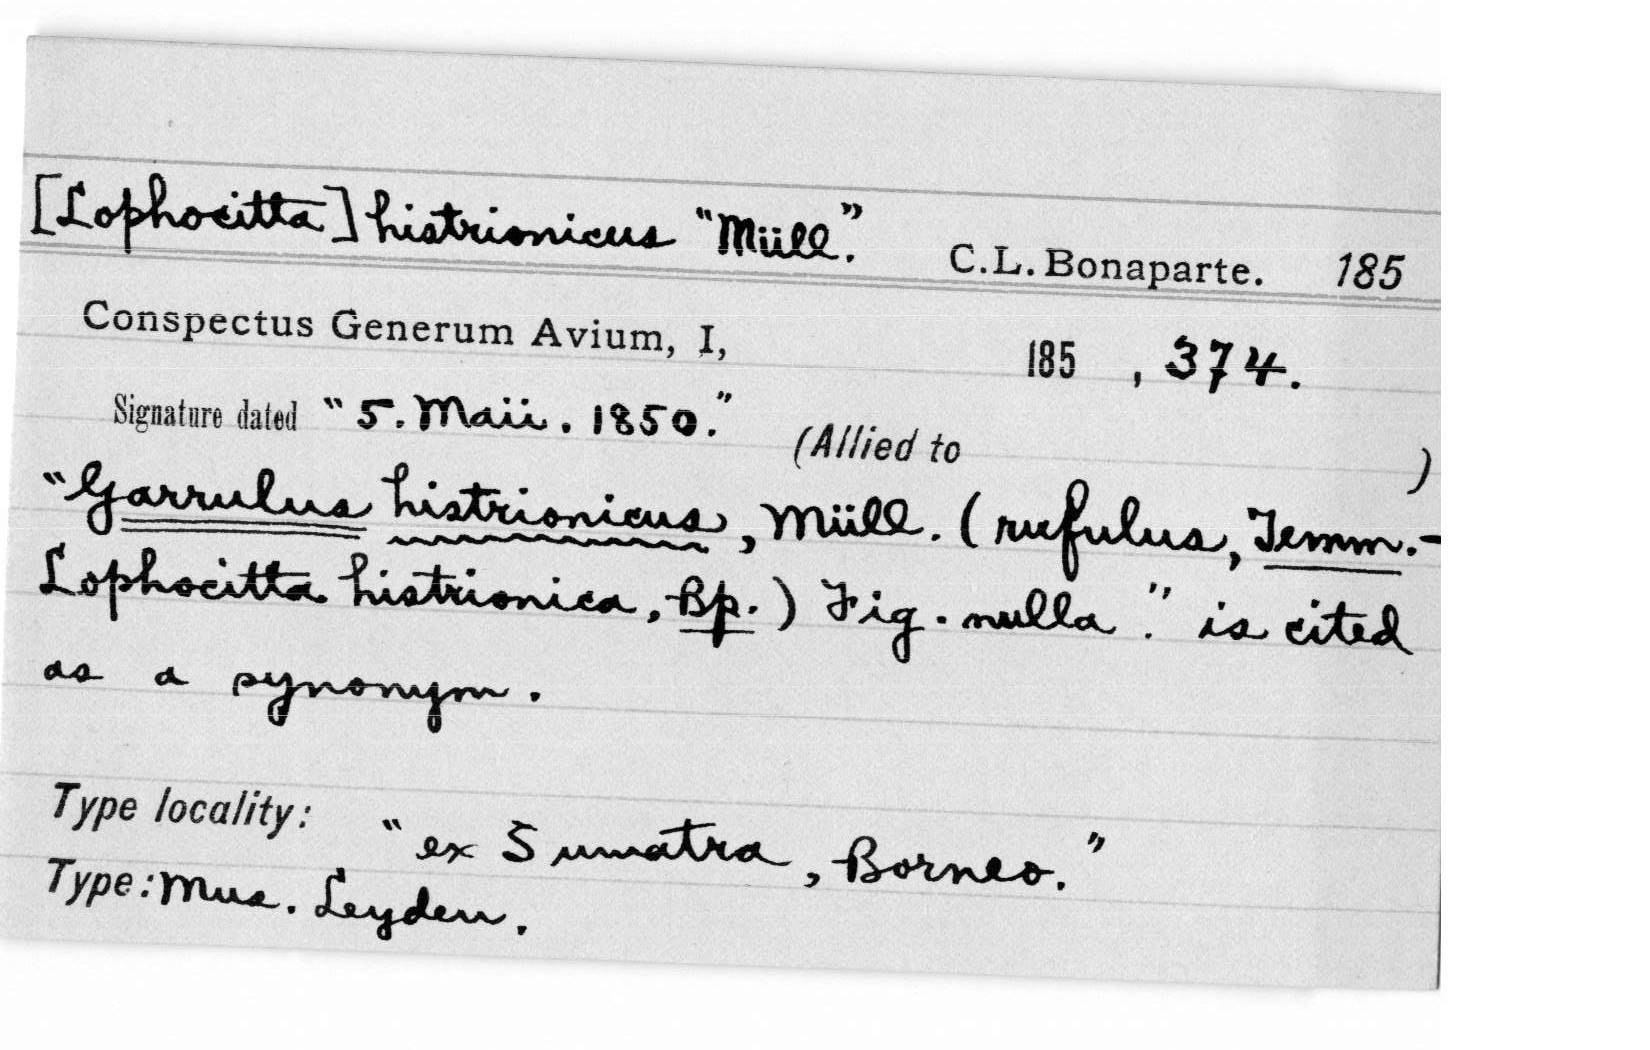 [Lophocitta] histrionicus "Müll." C.L. Bonaparte. 185
Conspectus Generum Avium, I, 185 , 374.
Signature dated "5. Maii. 1850." (Allied to )
"Garrulus histrionicus, Müll. (rufulus, Temm.-
Lophocitta histrionica, Bp.) Fig. nulla." is cited
as a synonym.
Type locality: "ex Sumatra, Borneo."
Type: Mus. Leyden.